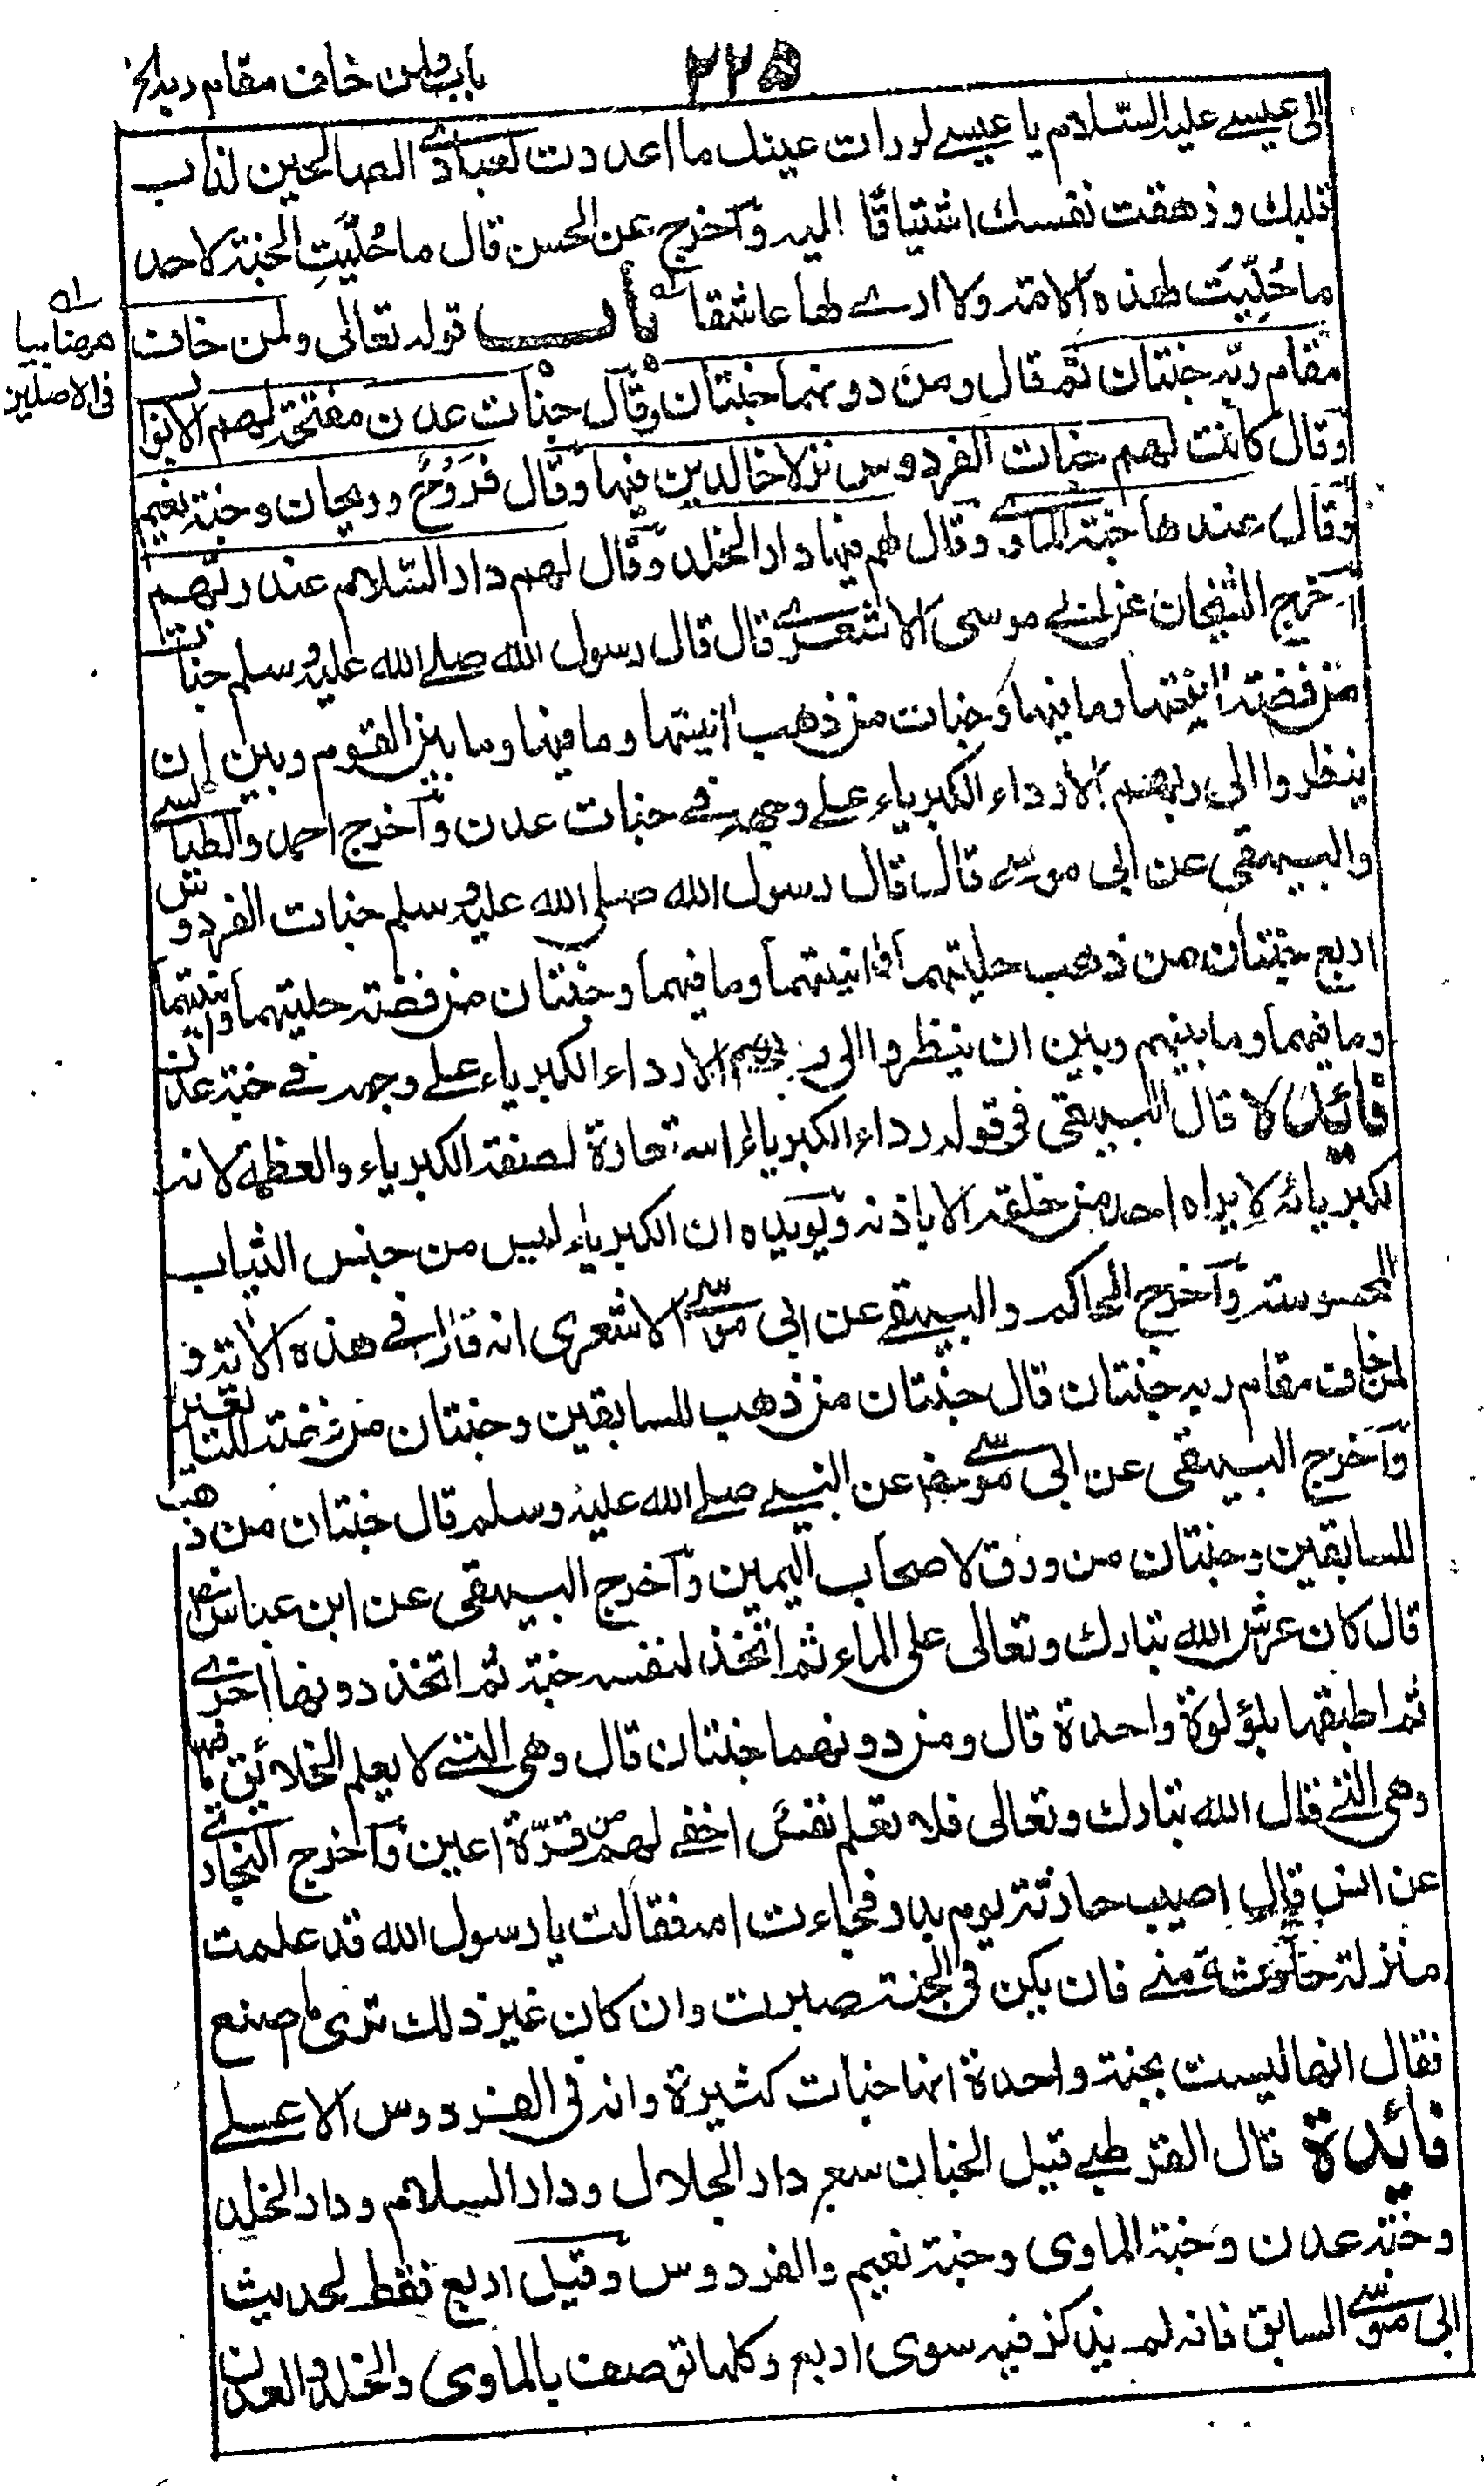 باب ولمن خاف مقام ربه الخ
٢٢٥
الى عيسے عليه السّلام يا عيسے لو رات عينك ما اعددت لعبادے الصالحين لذاب
قلبك و زهقت نفسك اشتياقًا اليه وآخرج عن الحسن قال ما حُلّيَتِ الجنة لاحد
ما حُلِّيَت لهذه الامة ولا ارے لها عاشقا باب قوله تعالى ولمن خاف
هـ ہضا بيا
فى الاصلين
مقام ربّه جنتان ثم قال ومن دونهما جنتان وقال جنات عدن مفتحة لهم الابواب
وقال كانت لهم جنات الفردوس نزلا خالدين فيها وقال فَرَوحٌ وريحان وجنة نعيم
وقال عندها جنة الماوے وقال لهم فيها دار الخلد وقال لهم دار السّلام عند ربّهم
آخرج الشيخان عن ابے موسى الاشعرے قال قال رسول الله صلے الله عليه وسلم جنات
من فضة انيتها وما فيها وجنات من ذهب انيتها وما فيها وما بين القوم وبين ان
ينظروا الى ربهم الا رداء الكبرياء علے وجهه فے جنات عدن وآخرج احمد والطيالسے
والبيهقى عن ابى موسے قال قال رسول الله صلى الله عليه وسلم جنات الفردوس
اربع جنتان من ذهب حليتهما وانيتهما وما فيهما وجنتان من فضة حليتهما وانيتهما
وما فيهما وما بينهم وبين ان ينظروا الى ربهم الا رداء الكبرياء علے وجهه فے جنة عدن
فائدة قال البيهقى فى قوله رداء الكبرياء استعارة لصفة الكبرياء والعظمة لانه
لكبريائه لا يراه احد من خلقه الا باذنه ويؤيده ان الكبرياء ليس من جنس الثياب
المحسوسة وآخرج الحاكم والبيهقے عن ابى موسے الاشعرى انه قال فے هذه الاية و
لمن خاف مقام ربه جنتان قال جنتان من ذهب للسابقين وجنتان من فضة للتابعين
وآخرج البيهقى عن ابى موسے عن النبے صلے الله عليه وسلم قال جنتان من ذهب
للسابقين وجنتان من ورق لاصحاب اليمين وآخرج البيهقى عن ابن عباس
قال كان عرش الله تبارك وتعالى على الماء ثم اتخذ لنفسه جنة ثم اتخذ دونها اخرے
ثم اطبقها بلؤلؤة واحدة قال ومن دونهما جنتان قال وهى التے لا يعلم الخلائق ما فيها
وهى التے قال الله تبارك وتعالى فلا تعلم نفس اخفے لهم من قرّة اعين وآخرج البخارے
عن انس قال اصيب حارثة يوم بدر فجاءت امه فقالت يا رسول الله قد علمت
منزلة حارثة منے فان يكن فى الجنة صبرت وان كان غير ذلك ترى ما صنع
فقال انها ليست بجنة واحدة انها جنات كثيرة وانه فى الفردوس الاعلے
فائدة قال القرطبے قيل الجنان سبع دار الجلال ودار السلام ودار الخلد
وجنة عدن وجنة الماوى وجنة نعيم والفردوس وقيل اربع فقط لحديث
ابى موسے السابق فانه لم يذكر فيه سوى اربع وكلها توصف بالماوى والخلد والعدن